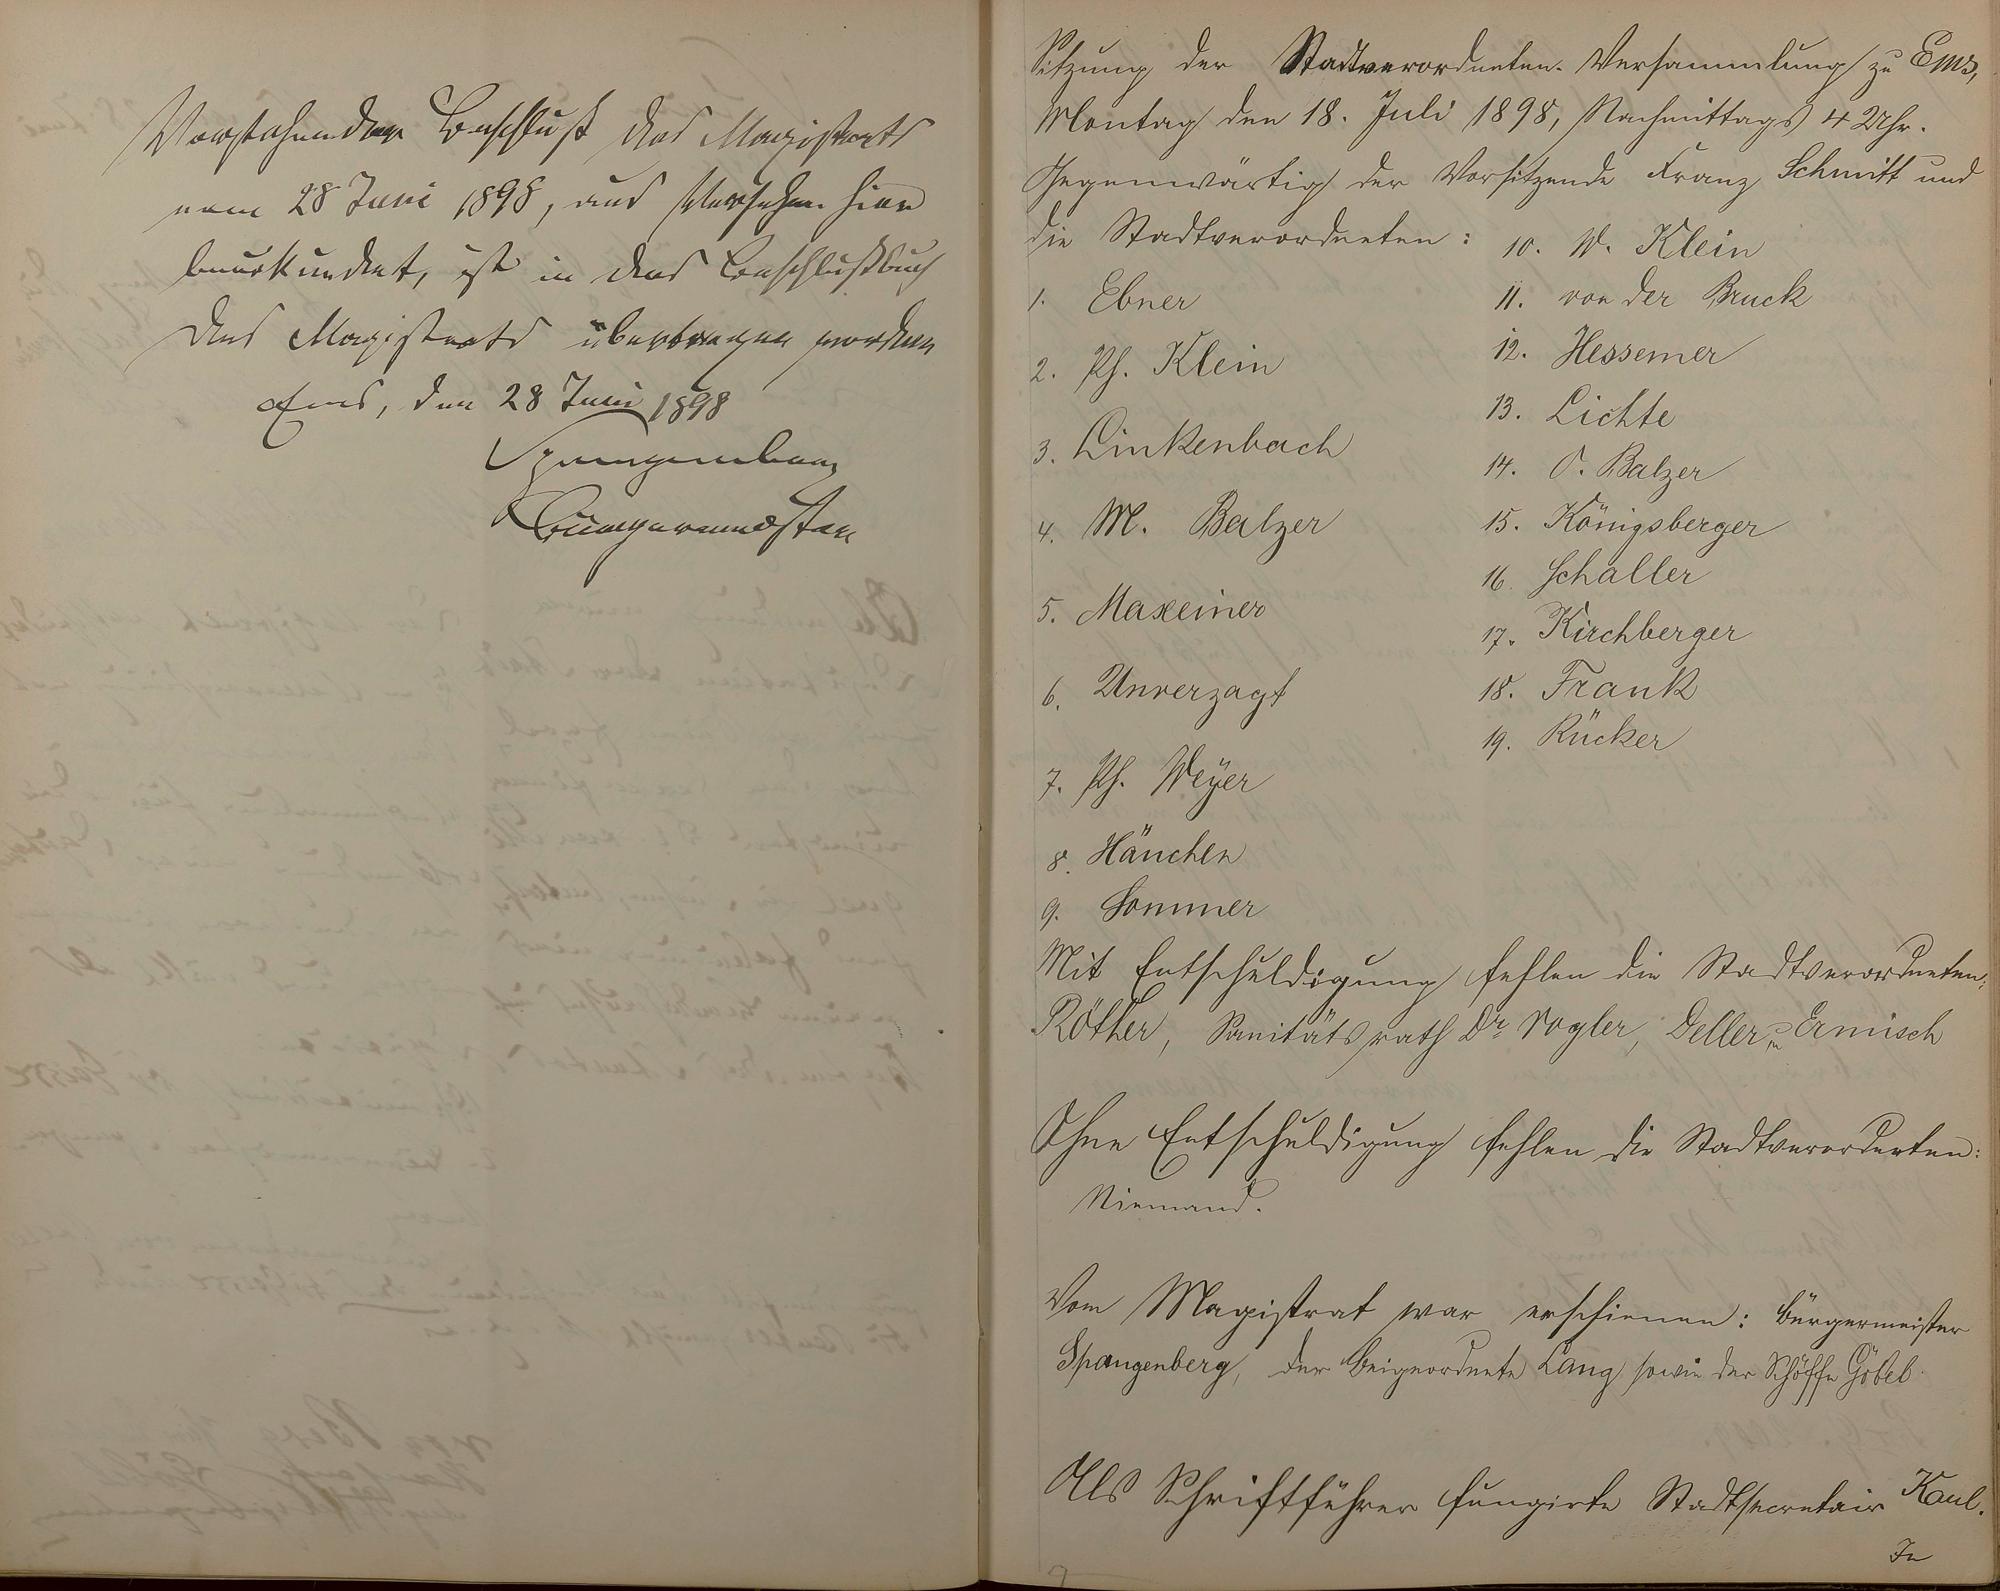 Vorstehender Beschluß des Magistrats
vom 28 Juni 1898, aus Versehen hier
beurkundet, ist in das Beschlußbuch
des Magistrats übertragen worden
Ems, den 28 Juni 1898
Spangenberg
Bürgermeister
Sitzung der Stadtverordneten-Versammlung zu Ems,
Montag den 18. Juli 1898, Nachmittags 4 Uhr.
Gegenwärtig der Vorsitzende Franz Schmitt und
die Stadtverordneten:
1. Ebner
2. Ph. Klein
3. Linkenbach
4. M. Balzer
5. Maxeiner
6. Unverzagt
7. Ph. Weyer
8. Hänchen
9. Sommer
10. W. Klein
11. von der Bruck
12. Hessemer
13. Lichte
14. O. Balzer
15. Königsberger
16. Schaller
17. Kirchberger
18. Frank
19. Rücker
Mit Entschuldigung fehlen die Stadtverordneten:
Röther, Sanitätsrath Dr Vogler, Deller, u Ermisch
Ohne Entschuldigung fehlen die Stadtverordneten:
Niemand.
Vom Magistrat war erschienen: Bürgermeister
Spangenberg, der Beigeordnete Lang sowie der Schöffe Göbel.
Als Schriftführer fungirte Stadtsecretair Kaul.
In